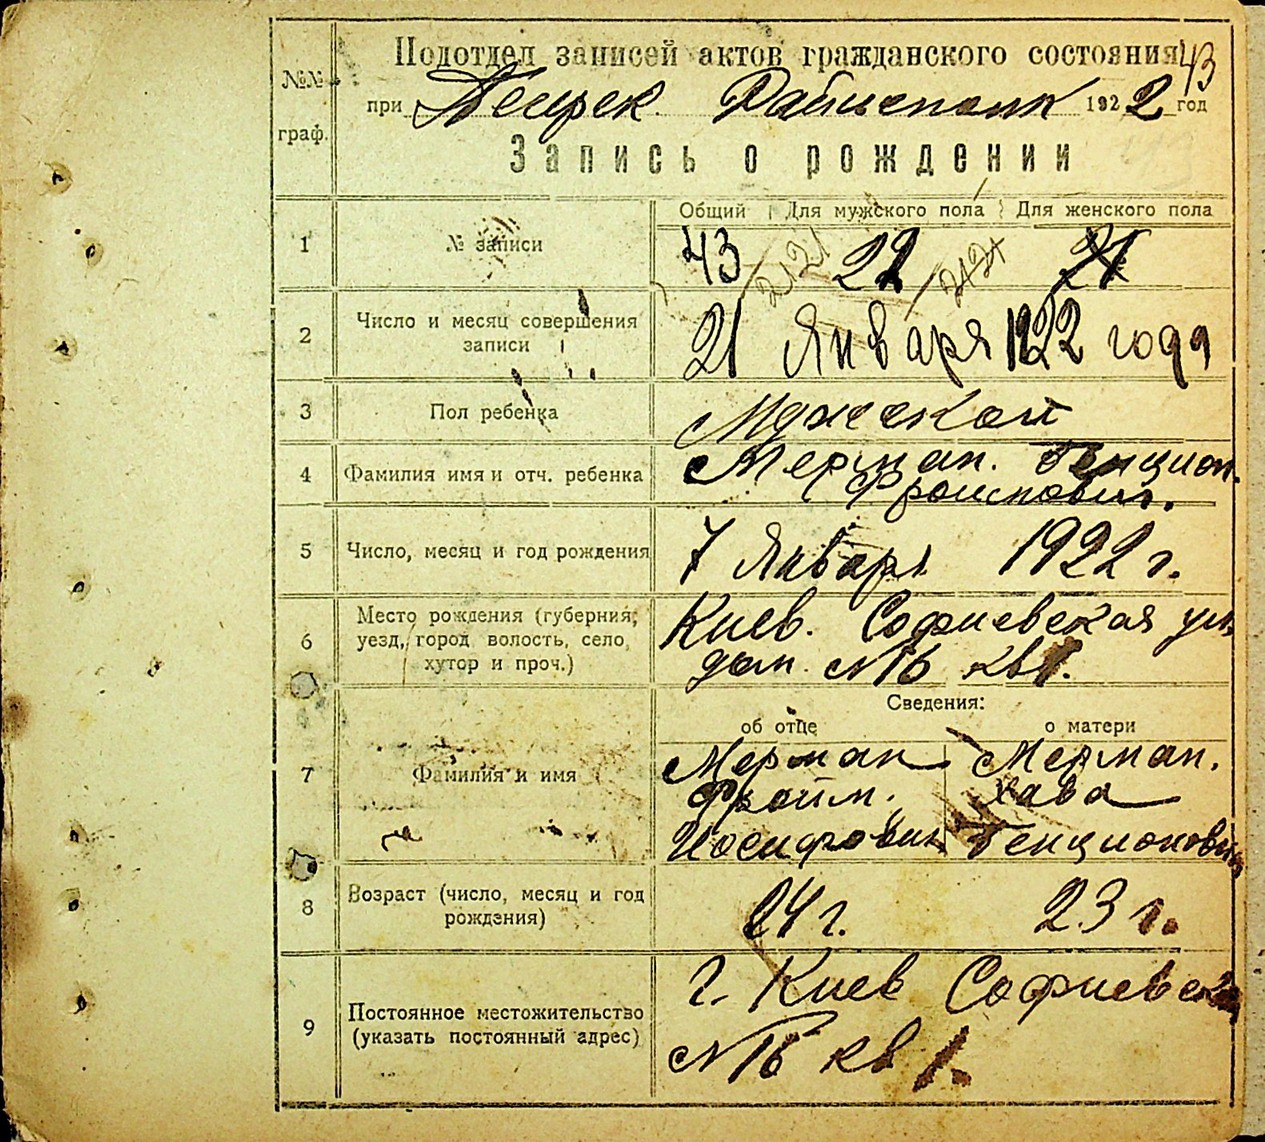 Подотдел записей актов гражданского состояния 43
№№ граф.
при Печерск. Райисполк 1922 год
Запись о рождении
Общий Для мужского пола Для женского пола
1 № записи 43 2121 22 2121 21
2 Число и месяц совершения
записи
21 Января 1922 года
3 Пол ребенка Мужской
4 Фамилия имя и отч. ребенка Мерман. Бенцион.
Фроимович.
5 Число, месяц и год рождения 7 Января 1922 г.
6 Место рождения (губерния,
уезд, город волость, село,
хутор и проч.)
Киев. Софиевская ул.
дом. №16 кв 1.
Сведения:
об отце о матери
7 Фамилия и имя
Мерман Мерман.
Фроим. Хава
Иосифович Бенционовна
8 Возраст (число, месяц и год
рождения)
24 г. 23 г.
9 Постоянное местожительство
(указать постоянный адрес)
г. Киев Софиевск
№16 кв 1.